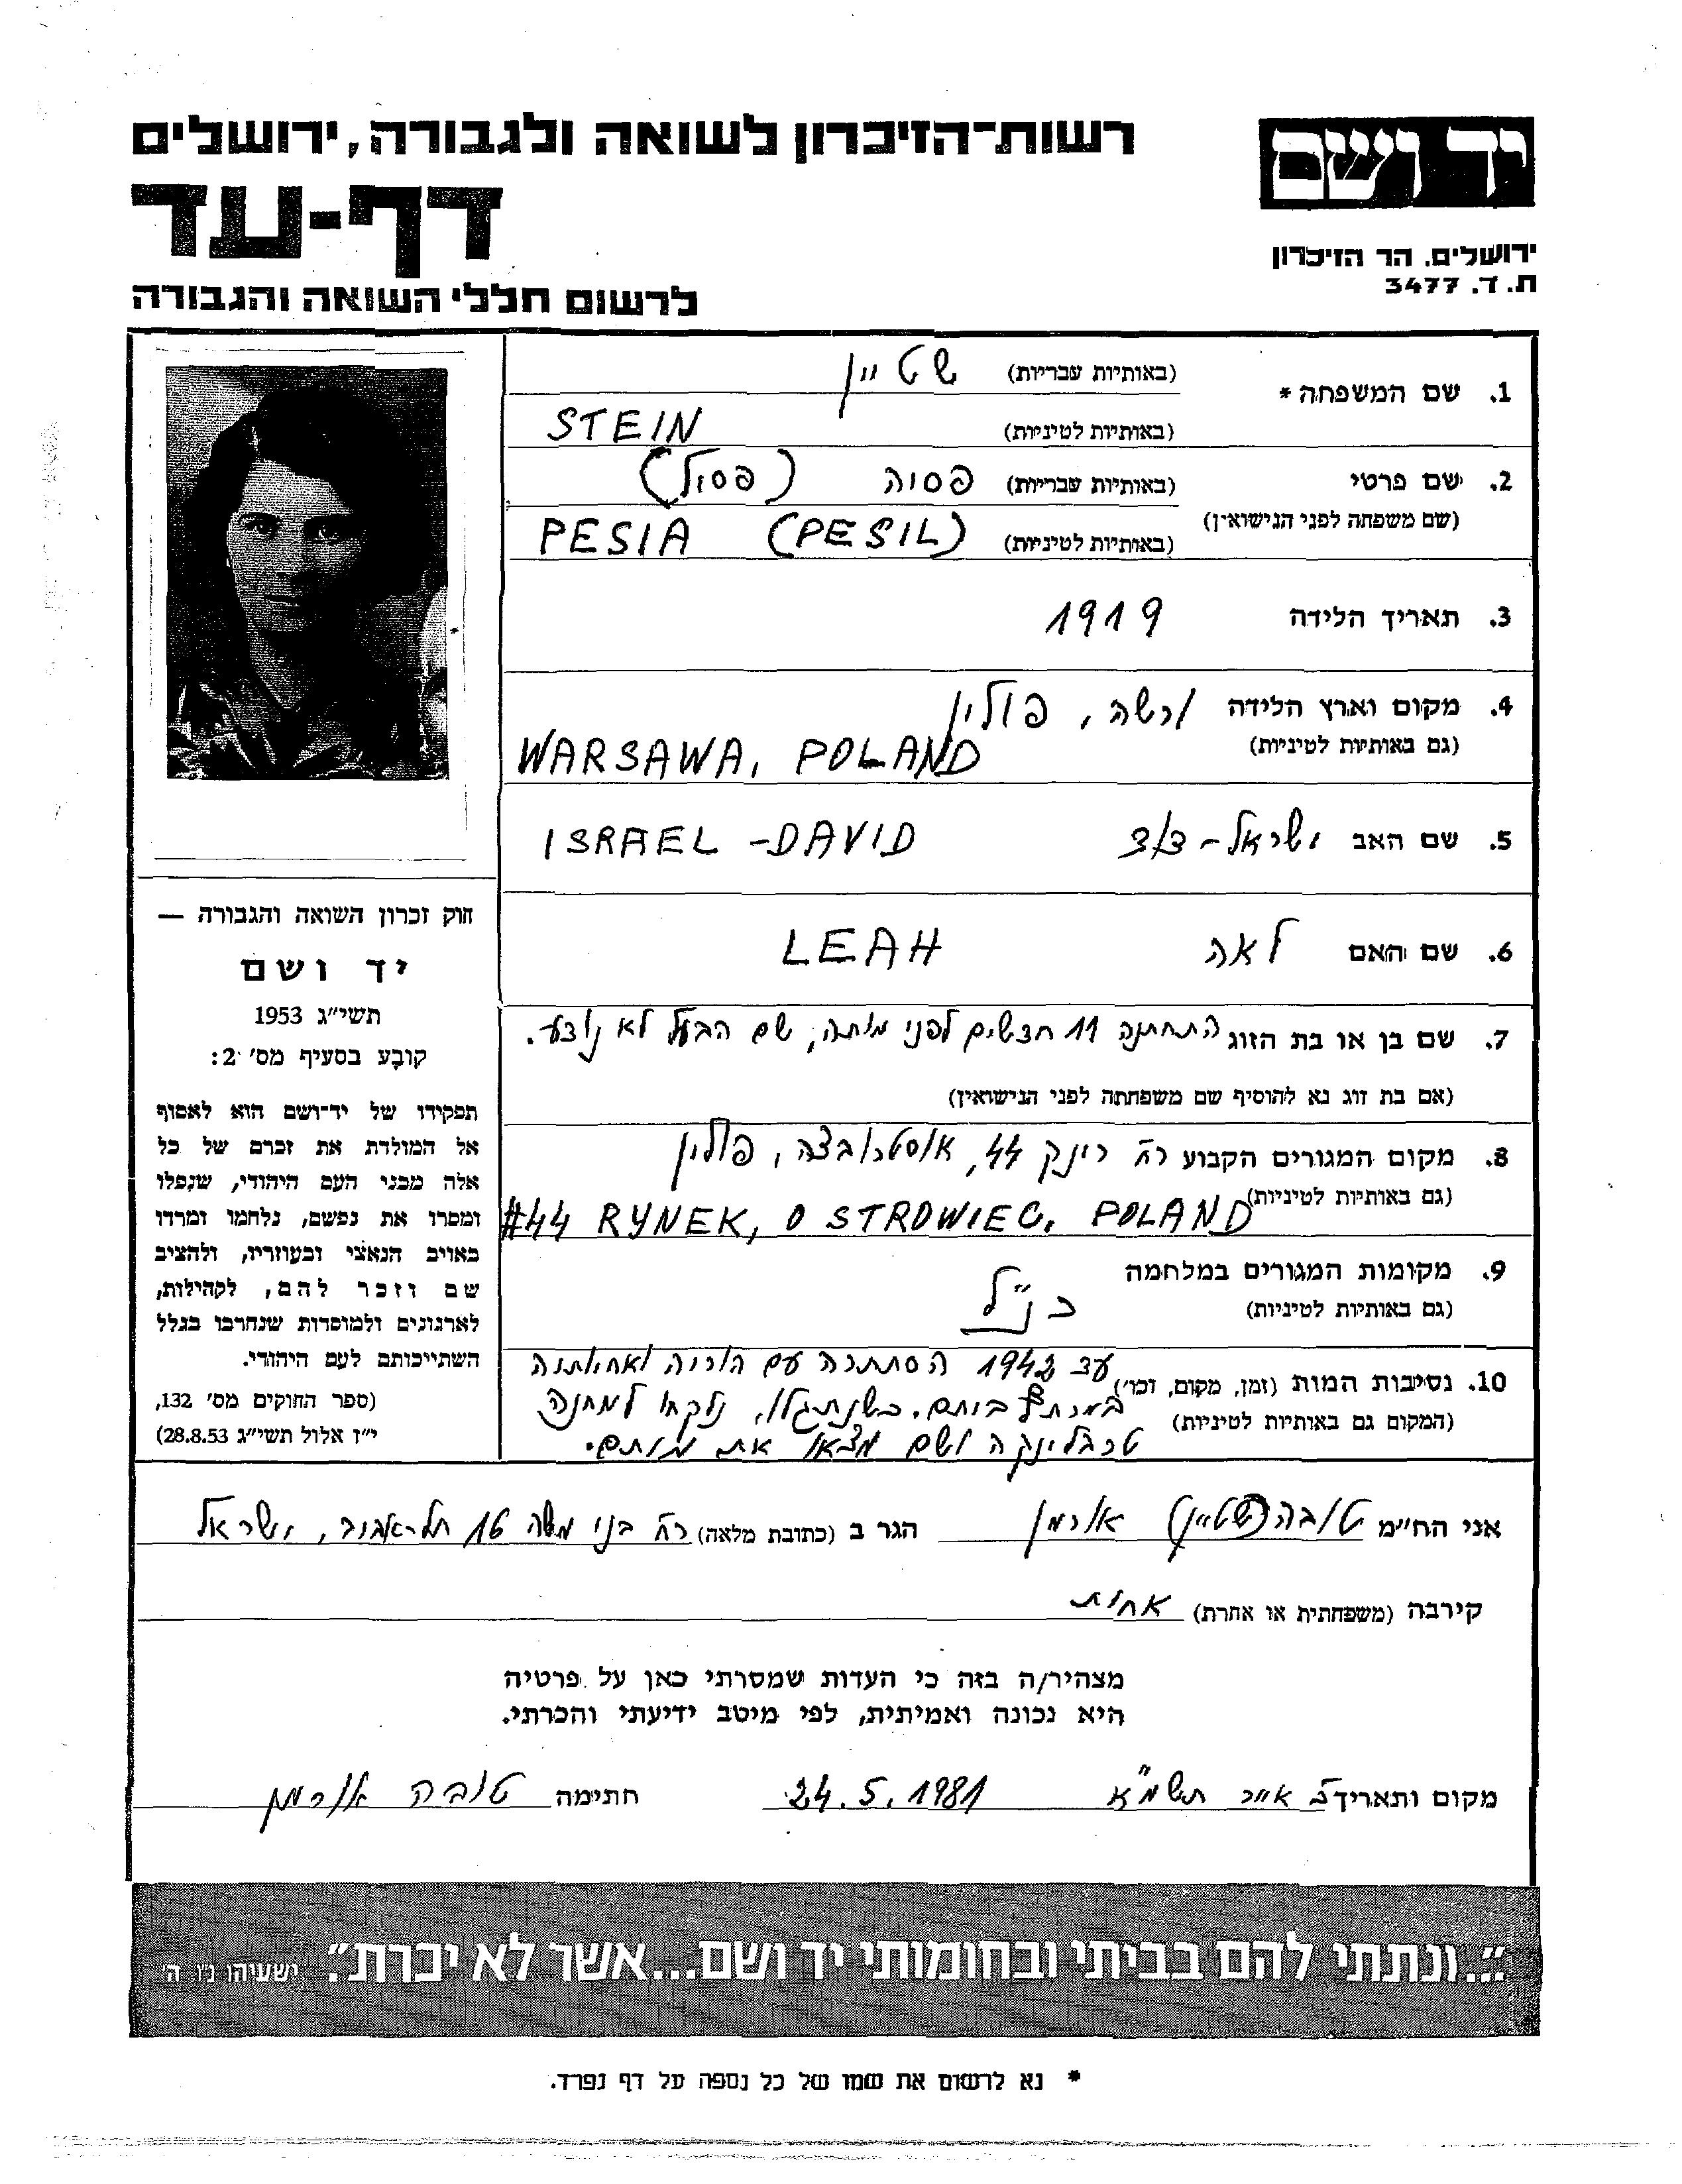 רשות-הזיכרון לשואה ולגבורה, ירושלים
דף-עד
לרשום חללי השואה והגבורה
יד ושם
ירושלים, הר הזיכרון
ת.ד. 3477
1. שם המשפחה * (באותיות עבריות) שטיין
(באותיות לטיניות) STEIN
2. שם פרטי (באותיות עבריות) פסיה (פסיל)
(שם משפחה לפני הנישואין) (באותיות לטיניות) PESIA (PESIL)
3. תאריך הלידה 1919
4. מקום וארץ הלידה ורשה, פולין
(גם באותיות לטיניות) WARSAWA, POLAND
5. שם האב ישראל-דוד ISRAEL-DAVID
6. שם האם לאה LEAH
7. שם בן או בת הזוג התחתנה 11 חדשים לפני מותה, שם הבעל לא נודע.
(אם בת זוג נא להוסיף שם משפחתה לפני הנישואין)
8. מקום המגורים הקבוע רח' רינק 44, אוסטרובצה, פולין
(גם באותיות לטיניות) #44 RYNEK, OSTROWIEC, POLAND
9. מקומות המגורים במלחמה
(גם באותיות לטיניות) כנ"ל
10. נסיבות המות (זמן, מקום, וכו') עד 1942 הסתתרה עם הוריה ואחיותיה
(המקום גם באותיות לטיניות) במרתף ביתם. כשנתגלו, נלקחו למחנה
טרבלינקה ושם מצאו את מותם.
חוק זכרון השואה והגבורה —
יד ושם
תשי"ג 1953
קובע בסעיף מס' 2:
תפקידו של יד-ושם הוא לאסוף
אל המולדת את זכרם של כל
אלה מבני העם היהודי, שנפלו
ומסרו את נפשם, נלחמו ומרדו
באויב הנאצי ובעוזריו, ולהציב
שם וזכר להם, לקהילות,
לארגונים ולמוסדות שנחרבו בגלל
השתייכותם לעם היהודי.
(ספר החוקים מס' 132,
י"ז אלול תשי"ג 28.8.53)
אני הח"מ טובה (שטיין) אורמן הגר ב (כתובת מלאה) רח' בני משה 16 תל-אביב, ישראל
קירבה (משפחתית או אחרת) אחות
מצהיר/ה בזה כי העדות שמסרתי כאן על פרטיה
היא נכונה ואמיתית, לפי מיטב ידיעתי והכרתי.
מקום ותאריך אייר תשמ"א 24.5.1981 חתימה טובה אורמן
"...ונתתי להם בביתי ובחומותי יד ושם...אשר לא יכרת". ישעיהו נ"ו ה'
* נא לרשום את שמו של כל נספה על דף נפרד.